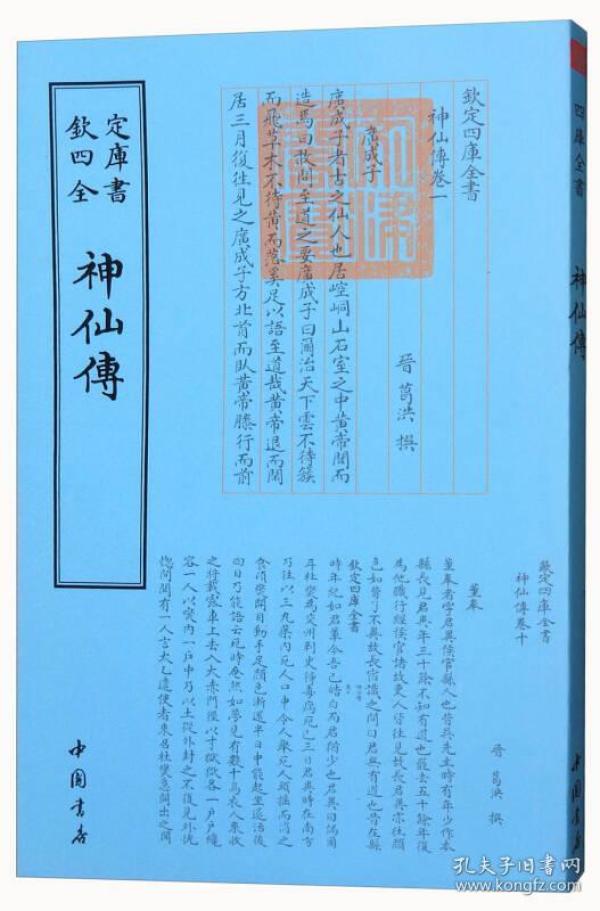 欽定
四庫
全書
神仙傳
中國書店
欽定四庫全書
神仙傳卷一
晉 葛洪 撰
廣成子
廣成子者古之仙人也居崆峒山石室之中黃帝聞而
造焉曰敢問至道之要廣成子曰爾治天下雲不待簇
而飛草木不待黃而落奚足以語至道哉黃帝退而閒
居三月復往見之廣成子方北首而臥黃帝膝行而前
欽定四庫全書
神仙傳卷十
晉 葛洪 撰
董奉
董奉者字君異侯官縣人也昔吳先主時有年少作本
縣長見君異年三十餘不知有道也罷去五十餘年復
為他職行經侯官諸故吏人皆往見故長君異亦往顏
色如昔了不異故長宿識之問曰君無有道也昔在縣
欽定四庫全書
時年紀如君輩今吾已皓白而君猶少也君異曰偶爾
耳杜燮為交州刺史得毒病死已三日君異時在南方
乃往以三九藥內死人口中令人舉死人頭搖而消之
食頃燮開目動手足顏色漸還半日中能起坐遂活後
四日乃能語云死時奄然如夢見有數十烏衣人來收
之將載露車上去入大赤門徑以寸獄獄各一戶戶纔
容一人以燮內一戶中乃以土從外封之不復見外恍
惚間聞有一人言太乙遣使者來召杜燮急開出之聞
四庫全書
神仙傳
孔夫子旧书网
www.kongfz.com